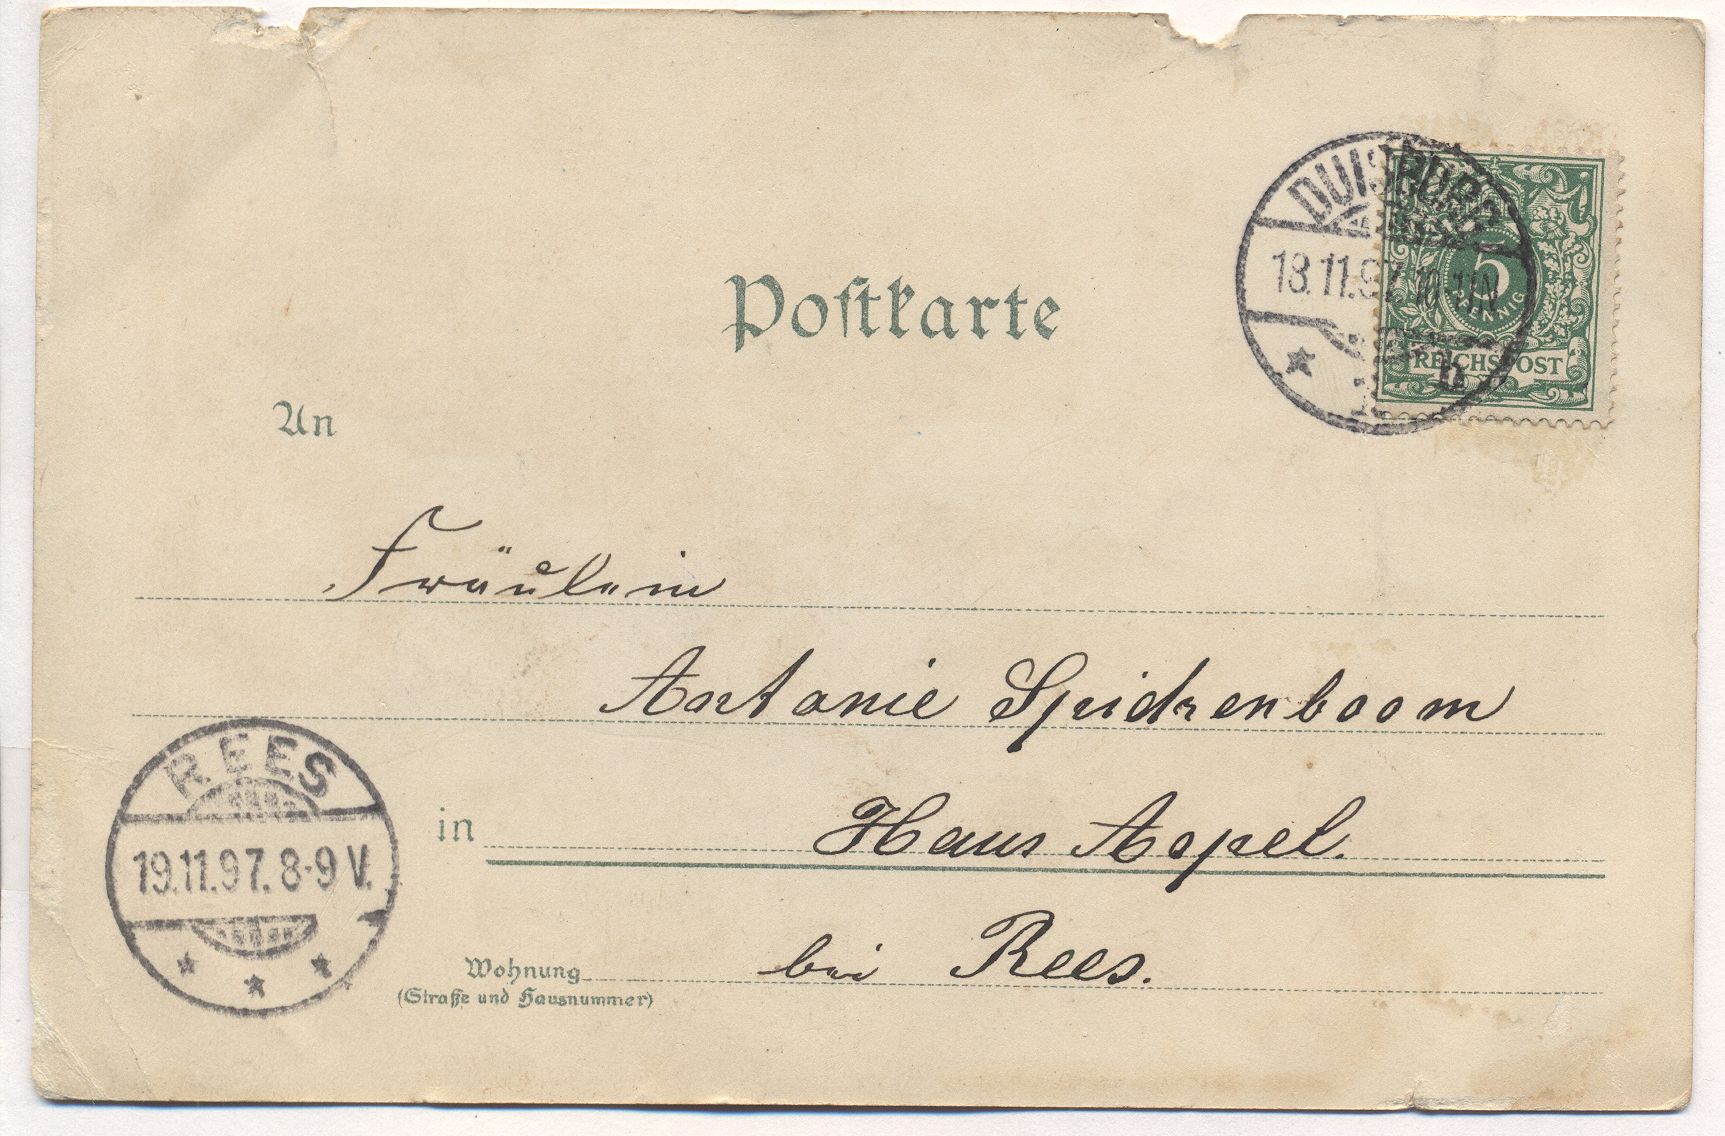 DUISBURG
18.11.97. 10-11N
5
PFENNIG
REICHSPOST
Postkarte
An
Fräulein
Antonie
Haus Aspel.
bei Rees.
in
REES
19.11.97. 8-9 V.
Wohnung
(Straße und Hausnummer)